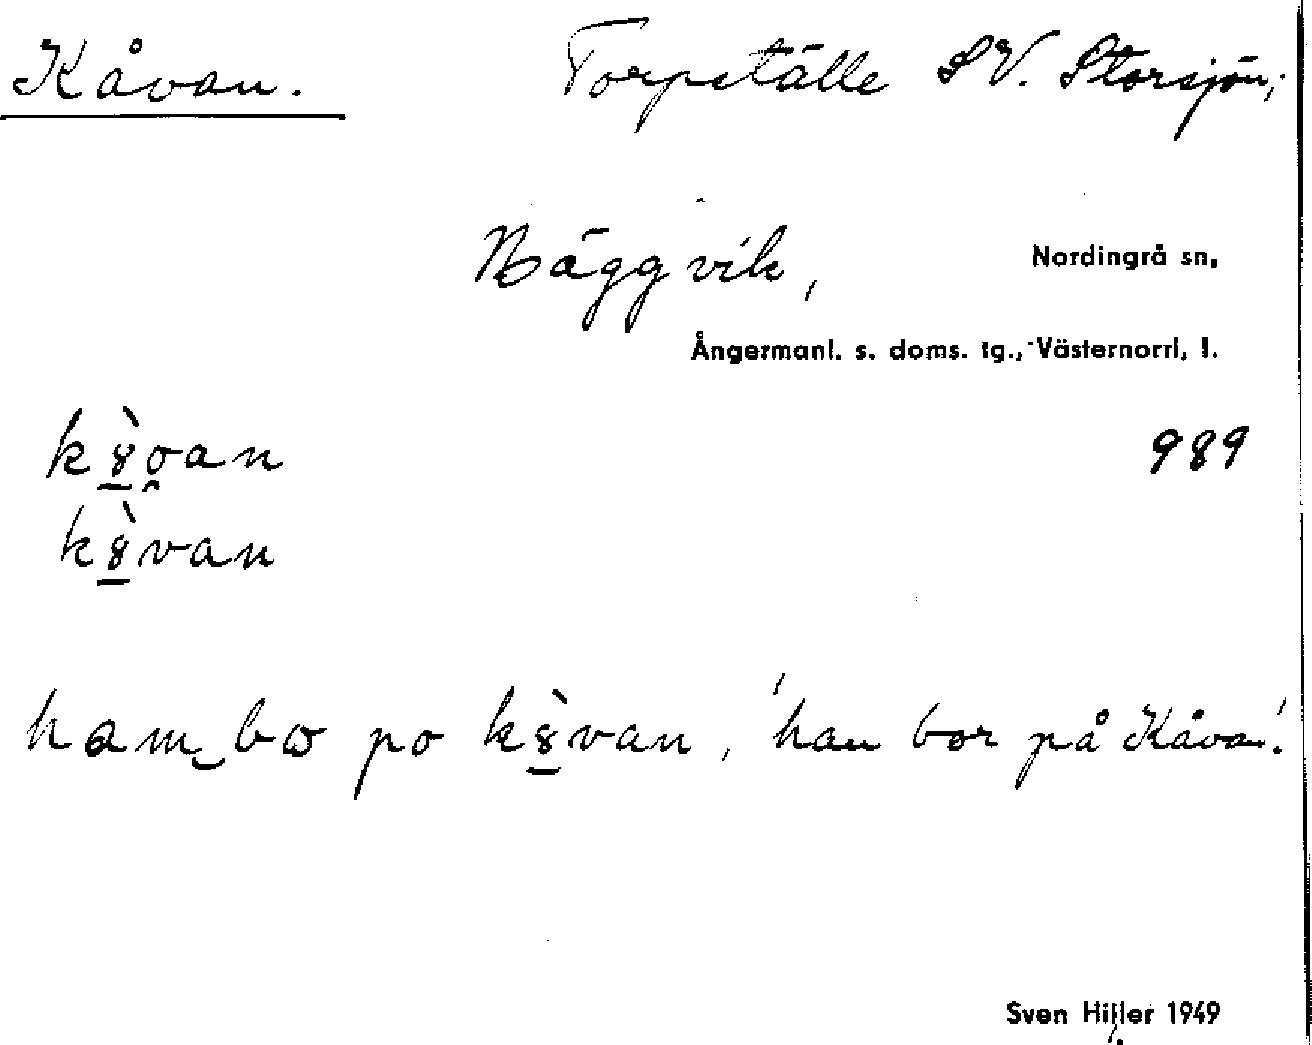 Kåvan. Torpställe S V. Storsjön,
Bäggvik, Nordingrå sn,
Ångermanl. s. doms. tg., Västernorrl. l.
989
kȣ̀van
ham bo po kȣ̀van, 'han bor på Kåvan.'
Sven Hiller 1949